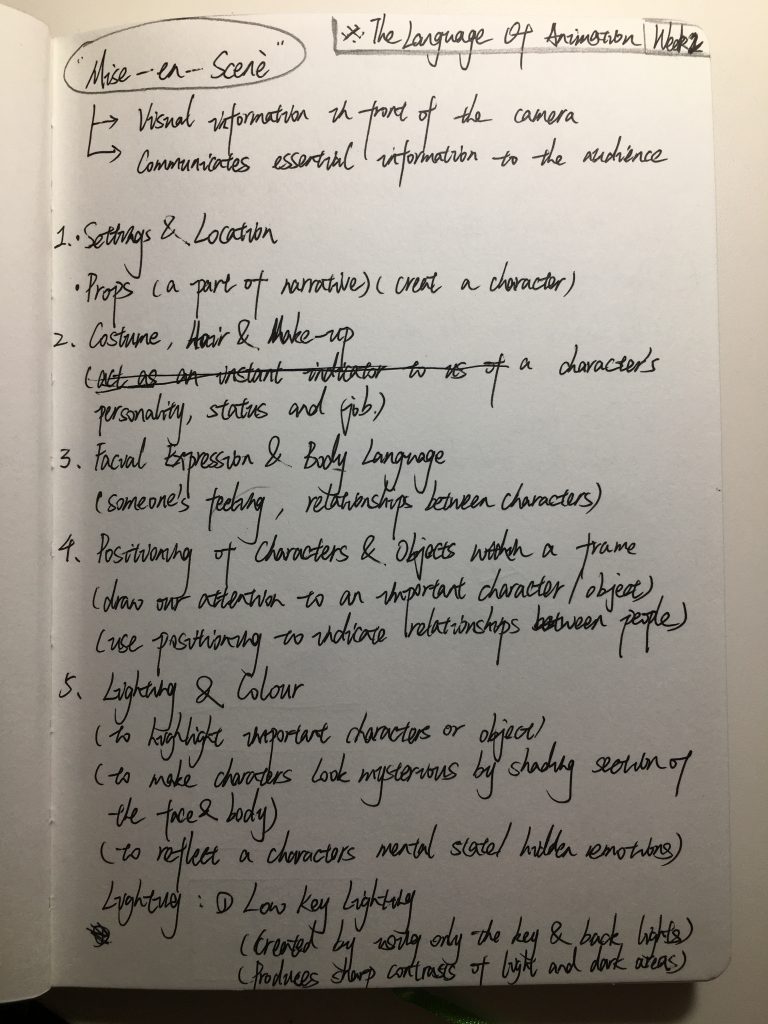 ※ The Language Of Animation Week 2
"Mise-en-Scenè"
→ Visual information in front of the camera
→ Communicates essential information to the audience
1. · Settings & Location
· Props (a part of narrative) (creat a character)
2. Costume, Hair & Make-up
(act as an instant indicator to us of a character's
personality, status and job.)
3. Facial Expression & Body Language
(someone's feeling, relationships between characters)
4. Positioning of Characters & Objects within a frame
(draw our attention to an important character/object)
(use positioning to indicate relationships between people)
5. Lighting & Colour
(to highlight important characters or object)
(to make charaters look mysterious by shading section of
the face & body)
(to reflect a characters mental state/ hidden emotions)
Lighting : ① Low Key Lighting
(Created by using only the key & back lights)
(Produces sharp contrasts of light and dark areas)